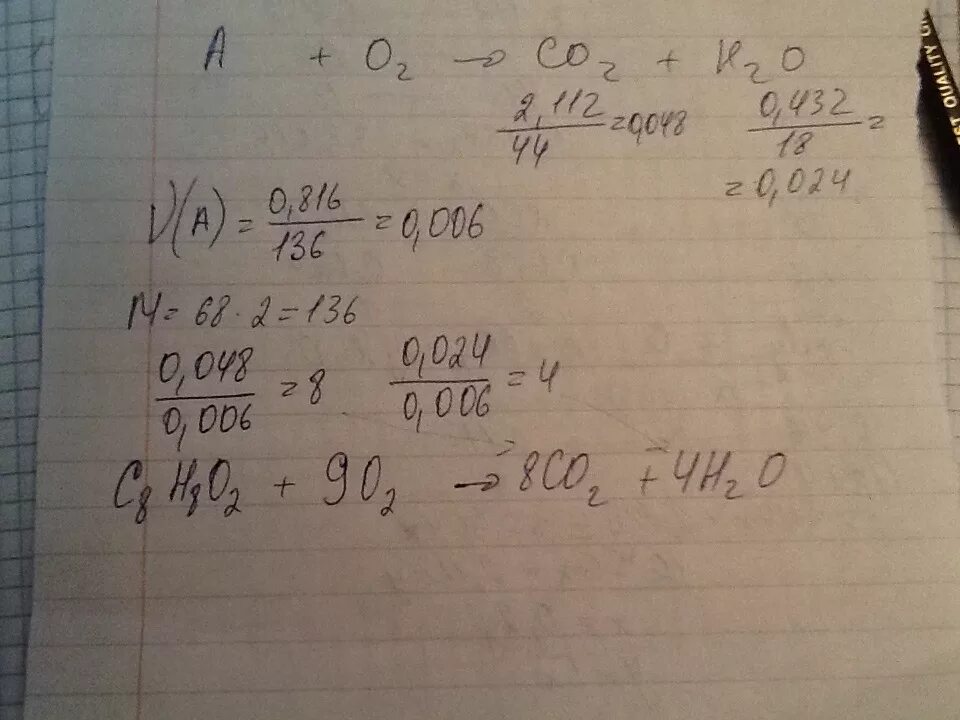 A + O₂ → CO₂ + H₂O
2,112/44 = 0,048 0,432/18 =
= 0,024
ν(A) = 0,816/136 = 0,006
M = 68 · 2 = 136
0,048/0,006 = 8 0,024/0,006 = 4
C₈H₈O₂ + 9O₂ → 8CO₂ + 4H₂O
QUALITY